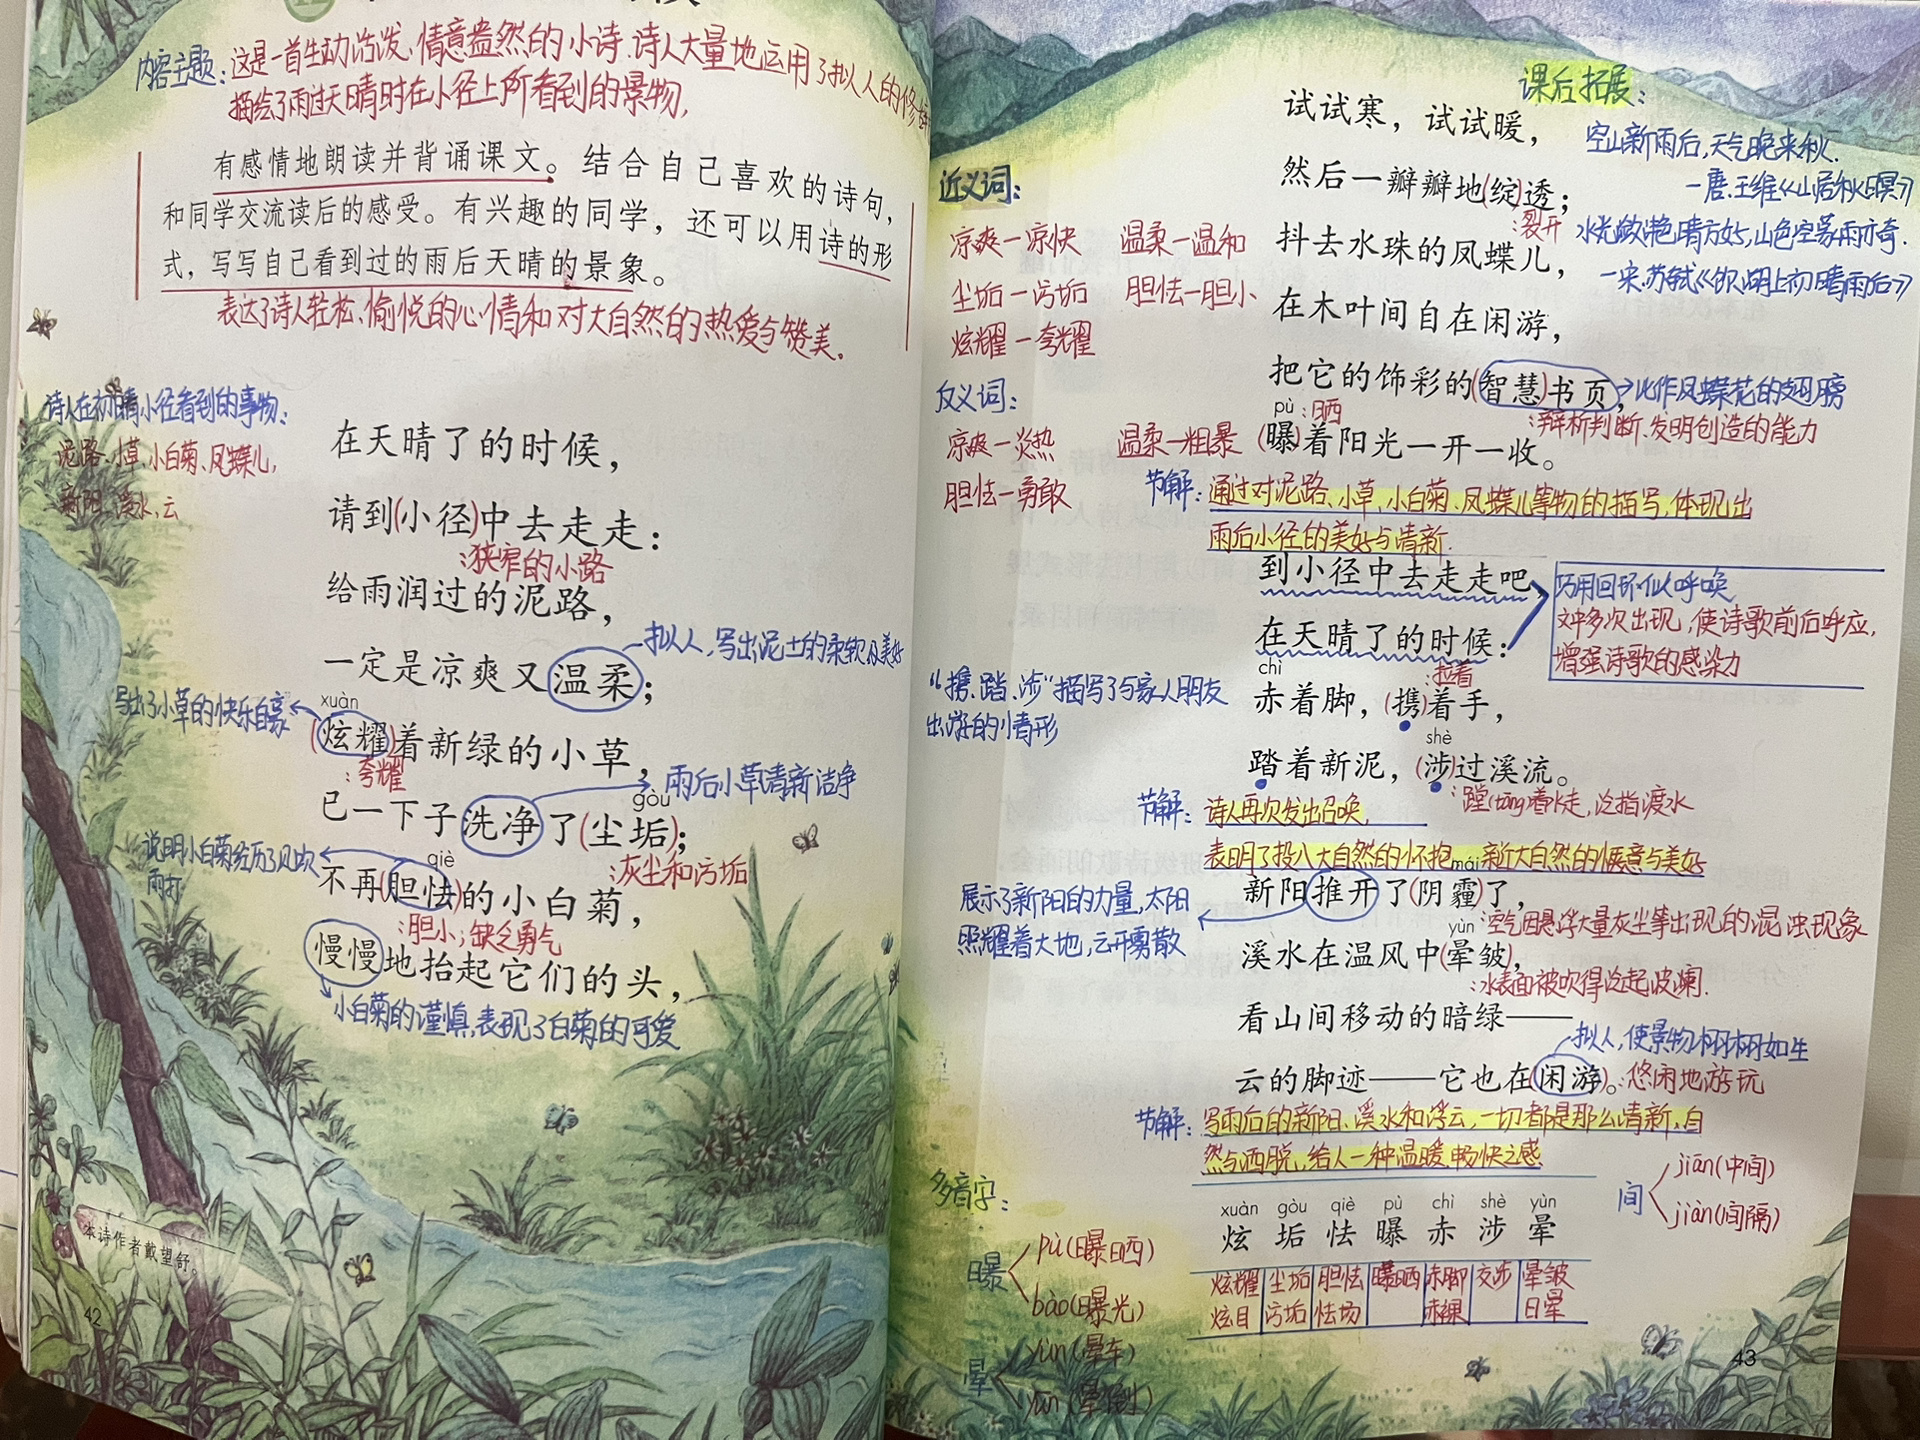 内容主题：这是一首生动活泼、情意盎然的小诗.诗人大量地运用了拟人的修辞
描绘了雨过天晴时在小径上所看到的景物,
有感情地朗读并背诵课文。结合自己喜欢的诗句，
和同学交流读后的感受。有兴趣的同学，还可以用诗的形
式，写写自己看到过的雨后天晴的景象。
表达了诗人轻松、愉悦的心情和对大自然的热爱与赞美。
诗人在初晴小径看到的事物：
泥路、小草、小白菊、凤蝶儿,
新阳、溪水,云
在天晴了的时候，
请到(小径)中去走走：
:狭窄的小路
给雨润过的泥路，
拟人,写出泥土的柔软及美好
一定是凉爽又温柔；
写出了小草的快乐自豪
xuàn
(炫耀)着新绿的小草，
:夸耀
雨后小草清新洁净
gòu
已一下子洗净了(尘垢)；
:灰尘和污垢
说明小白菊经历了风吹
雨打
qiè
不再(胆怯)的小白菊，
:胆小;缺乏勇气
慢慢地抬起它们的头，
小白菊的谨慎,表现了白菊的可爱
本诗作者戴望舒。
42
课后拓展：
空山新雨后,天气晚来秋.
—唐.王维《山居秋暝》
水光潋滟晴方好,山色空蒙雨亦奇.
—宋.苏轼《饮湖上初晴雨后》
近义词：
凉爽—凉快 温柔—温和
尘垢—污垢 胆怯—胆小
炫耀—夸耀
反义词：
凉爽—炎热 温柔—粗暴
胆怯—勇敢
试试寒，试试暖，
然后一瓣瓣地(绽)透；
:裂开
抖去水珠的凤蝶儿，
在木叶间自在闲游，
把它的饰彩的(智慧)书页，
比作凤蝶花的翅膀
:辩析判断、发明创造的能力
pù:晒
(曝)着阳光一开一收。
节解：通过对泥路、小草、小白菊、凤蝶儿等物的描写,体现出
雨后小径的美好与清新.
到小径中去走走吧，
在天晴了的时候：
巧用回环.似呼唤
文中多次出现,使诗歌前后呼应,
增强诗歌的感染力
“携、踏、涉”描写了与家人朋友
出游的情形
chì :拉着
赤着脚，(携)着手，
shè
踏着新泥，(涉)过溪流。
:蹚(tāng)着水走,泛指渡水
节解：诗人再次发出召唤,
表明了投入大自然的怀抱,亲近大自然的惬意与美好
mái
新阳推开了(阴霾)了，
:空气因悬浮大量灰尘等出现的混浊现象
展示了新阳的力量,太阳
照耀着大地,云开雾散
yùn
溪水在温风中(晕皱)，
:水表面被吹得泛起波澜.
看山间移动的暗绿——
拟人,使景物栩栩如生
云的脚迹——它也在(闲游)。:悠闲地游玩
节解：写雨后的新阳、溪水和浮云,一切都是那么清新、自
然与洒脱,给人一种温暖.畅快之感
多音字：
曝 pù(曝晒)
bào(曝光)
晕 yùn(晕车)
yūn(晕倒)
间 jiān(中间)
jiàn(间隔)
xuàn gòu qiè pù chì shè yùn
炫 垢 怯 曝 赤 涉 晕
炫耀 尘垢 胆怯 曝晒 赤脚 交涉 晕皱
炫目 污垢 怯场 赤裸 日晕
43